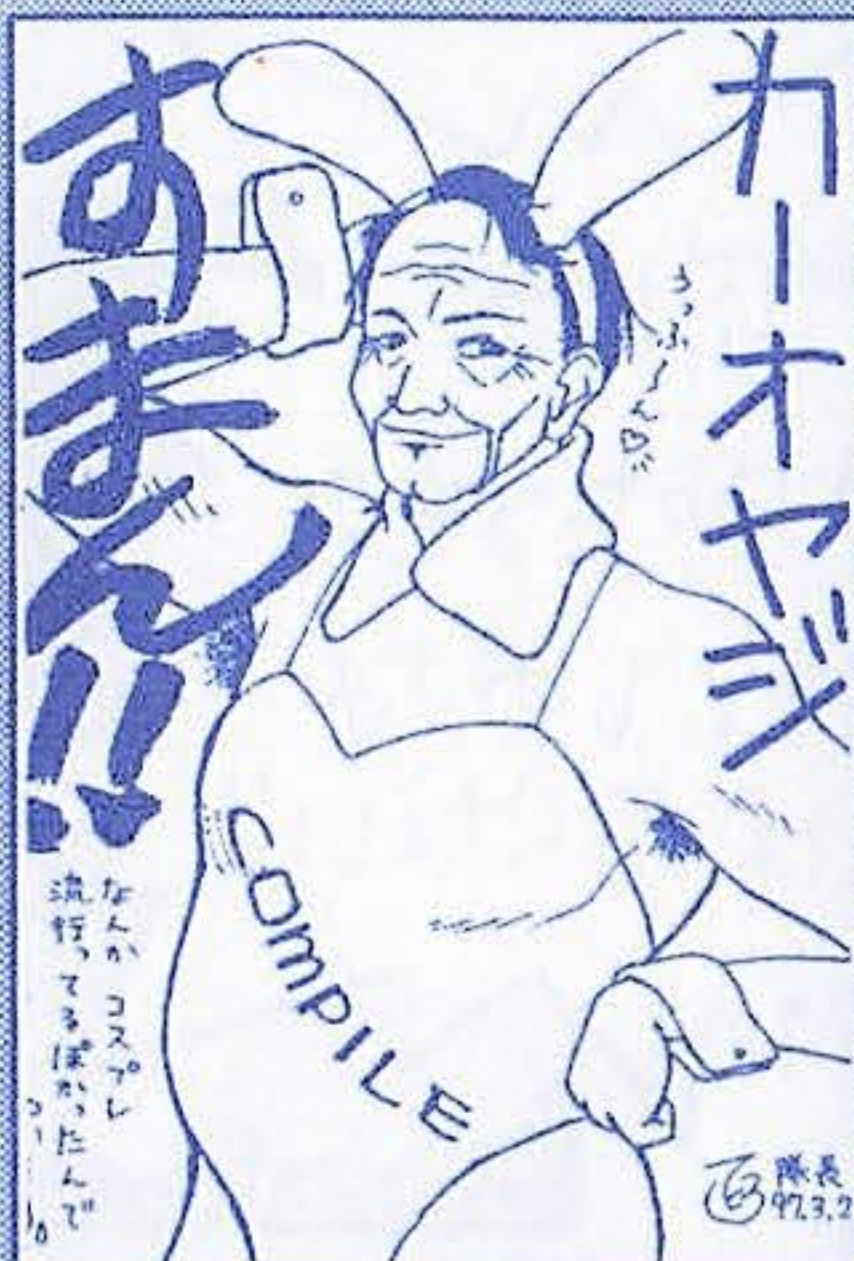 カーオヤジ
うっふ〜ん♡
すまん!!
COMPILE
なんか コスプレ
流行ってるぽかったんで
つい
画 隊長
97.3.2